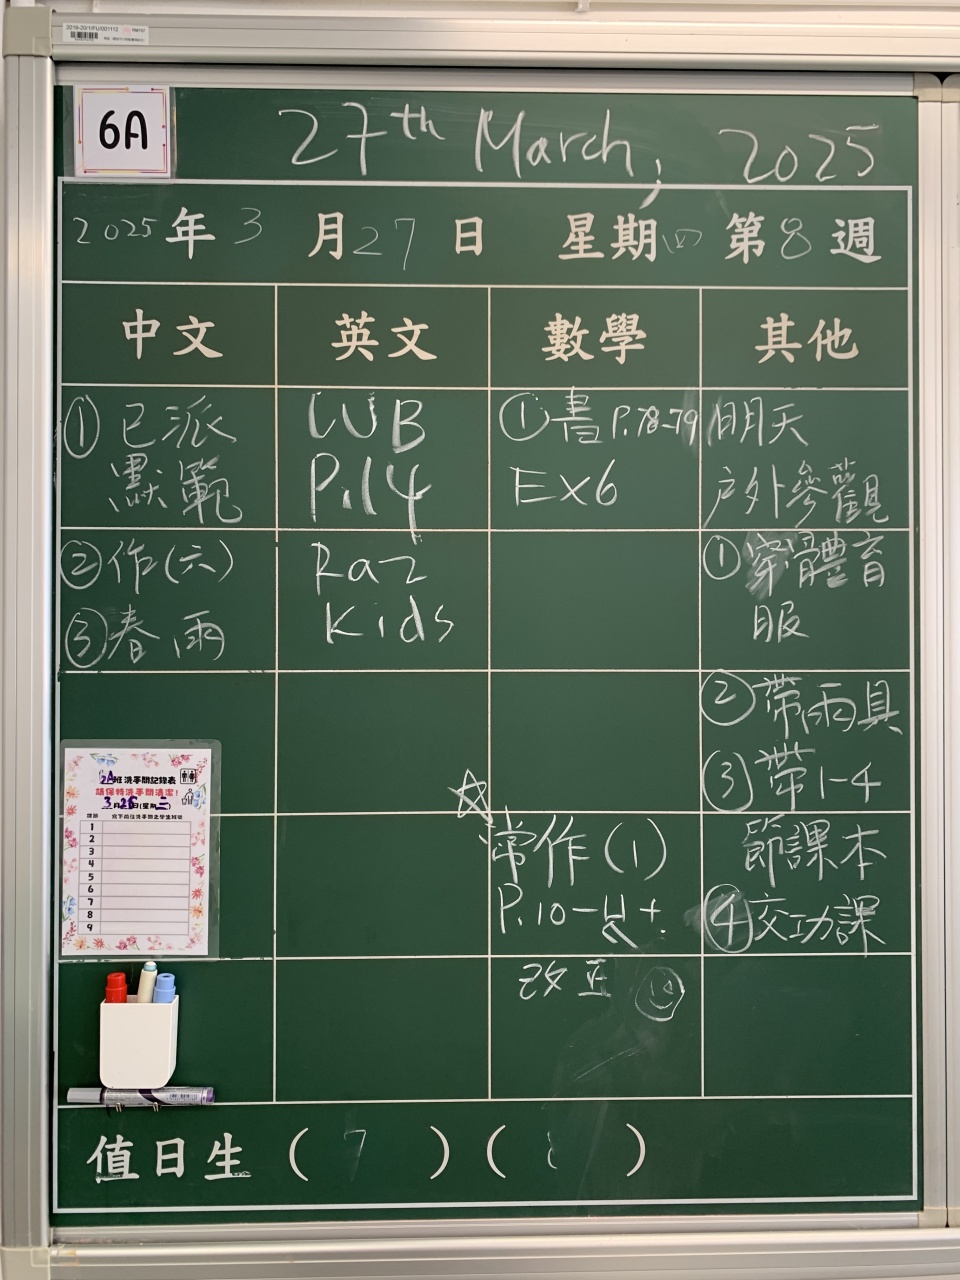 2019-20/1/FU/001112
6A
27th March, 2025
2025年3月27日 星期四 第8週
中文 英文 數學 其他
①已派
默範
②作(六)
③春雨
WB
P.14
Raz
Kids
①書P.78-79
EX6
☆
常作(1)
P.10-11+
改正
明天
戶外參觀
①穿體育
服
②帶雨具
③帶1-4
節課本
④交功課
2A班洗手間記錄表
請保持洗手間清潔!
1
2
3
4
5
6
7
8
9
值日生 ( 7 ) ( )